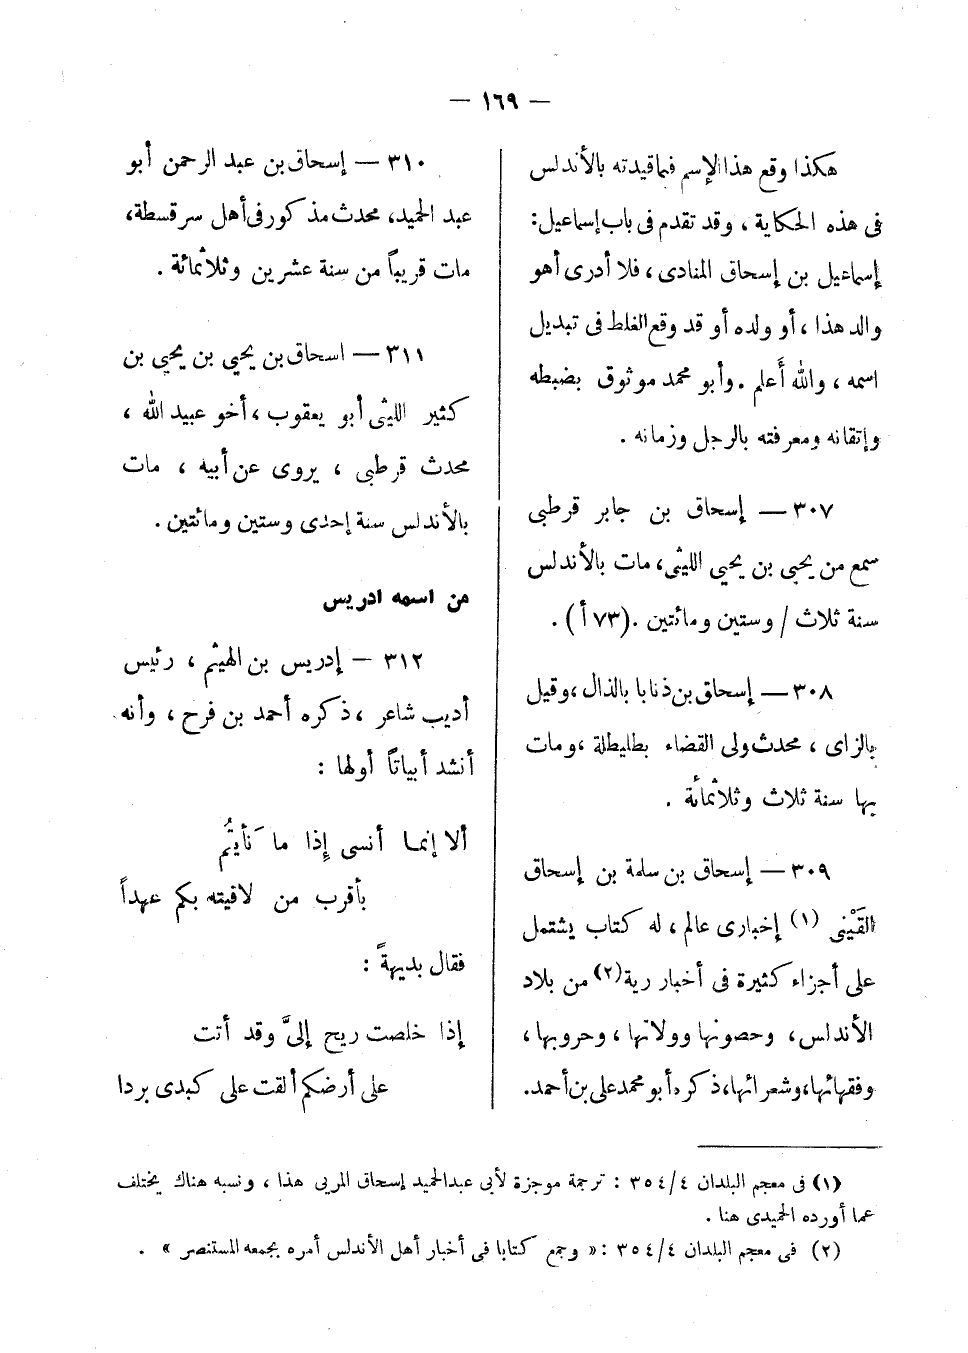 — ١٦٩ —
هكذا وقع هذا الإسم فيما قيدته بالأندلس
فى هذه الحكاية ، وقد تقدم فى باب إسماعيل:
إسماعيل بن إسحاق المنادى ، فلا أدرى أهو
والد هذا ، أو ولده أو قد وقع الغلط فى تبديل
اسمه ، والله أَعلم . وأبو محمد موثوق بضبطه
وإتقانه ومعرفته بالرجل وزمانه .
٣٠٧ — إسحاق بن جابر قرطبى
سمع من يحيى بن يحيى الليثى، مات بالأندلس
سنة ثلاث / وستين ومائتين .(٧٣ أ) .
٣٠٨ — إسحاق بن ذنابا بالذال ،وقيل
بالزاى ، محدث ولى القضاء بطليطلة ،ومات
بها سنة ثلاث وثلاثمائة .
٣٠٩ — إسحاق بن سلمة بن إسحاق
القَيْنى (١) إخبارى عالم ، له كتاب يشتمل
على أجزاء كثيرة فى أخبار رية(٢) من بلاد
الأندلس، وحصونها وولاتها ، وحروبها ،
وفقهائها،وشعرائها،ذكره أبو محمد على بن أحمد.
٣١٠ — إسحاق بن عبد الرحمن أبو
عبد الحميد، محدث مذكور فى أهل سرقسطة،
مات قريباً من سنة عشرين وثلاثمائة .
٣١١ — اسحاق بن يحيى بن يحيى بن
كثير الليثى أبو يعقوب ، أخو عبيد الله ،
محدث قرطبى ، يروى عن أبيه ، مات
بالأندلس سنة إحدى وستين ومائتين .
من اسمه ادريس
٣١٢ — إدريس بن الهيثم ، رئيس
أديب شاعر ، ذكره أحمد بن فرح ، وأنه
أنشد أبياتاً أولها :
ألا إنما أنسى إِذا ما نَأيتُم
بأقرب من لاقيته بكم عهداً
فقال بديهةً :
إذا خلصت ريح إلىَّ وقد أتت
على أرضكم ألقت على كبدى بردا
(١) فى معجم البلدان ٣٥٤/٤ : ترجمة موجزة لأبى عبدالحميد إسحاق المربى هذا ، ونسبه هناك يختلف
عما أورده الحميدى هنا .
(٢) فى معجم البلدان ٣٥٤/٤ :« وجمع كتابا فى أخبار أهل الأندلس أمره بجمعه المستنصر » .